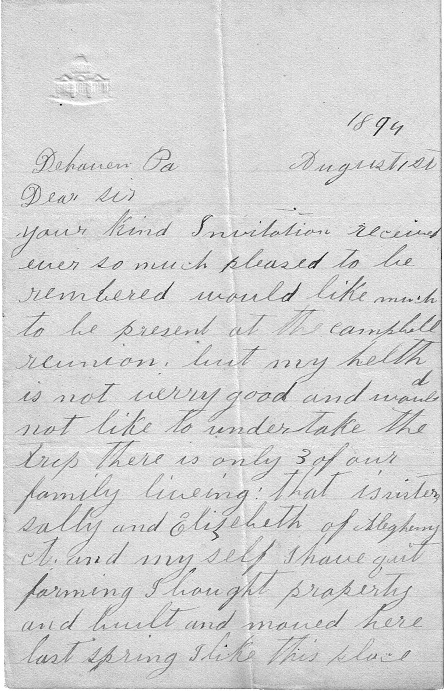 1894
Dehaven Pa August 1st
Dear sir
your kind Invitation received
ever so much pleased to be
rembered would like much
to be present at the campbell
reunion, but my helth
is not verry good and would
not like to undertake the
trip there is only 3 of our
family liveing: that is sister
sally and Elizebeth of Alegheny
and my self I have quit
farming I bought property
and built and moved here
last spring I like this place